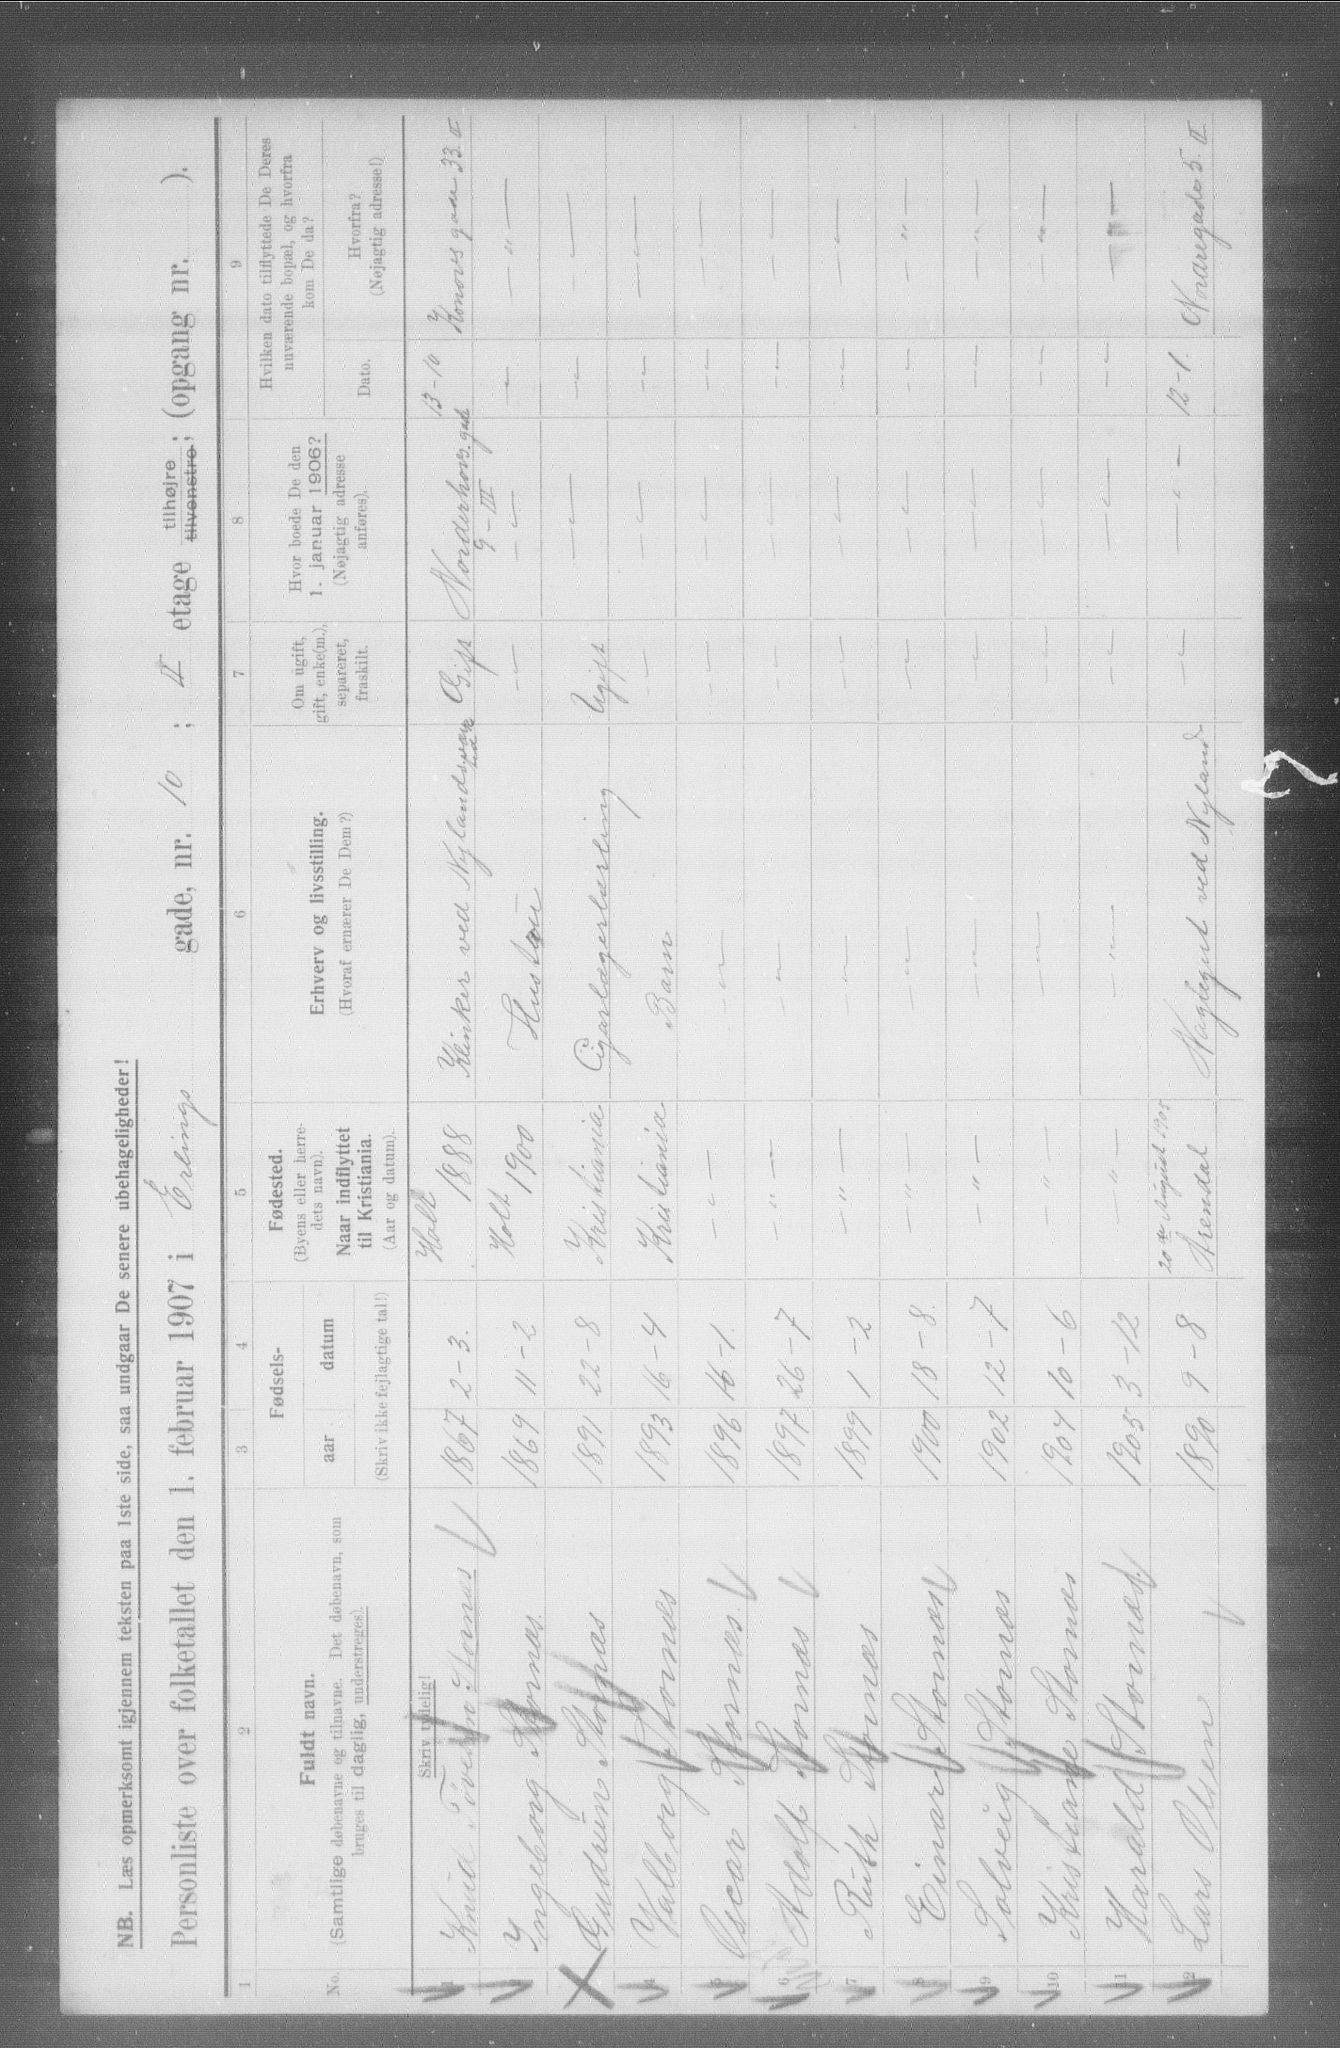 NB. Læs opmerksomt igjennem teksten paa 1ste side, saa undgaar De senere ubehageligheder!
Personliste over folketallet den 1. februar 1907 i Erlings gade, nr. 10 ; 4 etage tilhøjre tilvenstre; (opgang nr. ).
1 2 3 4 5 6 7 8 9
No.
Fuldt navn.
(Samtlige døbenavne og tilnavne. Det døbenavn, som
bruges til daglig, understreges).
Skriv tydelig!
Fødsels-
aar datum
(Skriv ikke fejlagtige tal!)
Fødested.
(Byens eller herre-
dets navn).
Naar indflyttet
til Kristiania.
(Aar og datum).
Erhverv og livsstilling.
(Hvoraf ernærer De Dem?)
Om ugift,
gift, enke(m.),
separeret,
fraskilt.
Hvor boede De den
1. januar 1906?
(Nøjagtig adresse
anføres).
Hvilken dato tilflyttede De Deres
nuværende bopæl, og hvorfra
kom De da?
Dato.
Hvorfra?
(Nøjagtig adresse!)
1 Knud Stornæs 1867 2-3. Holt 1888 Klinker ved Nylands Gift Norderhovs. gade 9-III 13-10 Konows gade 33 II
Ingeborg Stornæs. 1869 11-2 Holt 1900 Hustru -"- -"- -"- -"-
Gudrun Stornæs 1891 22-8 Kristiania Cigarlagerlærling Ugift -"- -"- -"-
4 Valborg Stornæs 1893 16-4 Kristiania Barn -"- -"- -"- -"-
5 Oscar Stornæs. 1896 16-1. -"- -"- -"- -"- -"- -"-
6 Adolf Stornæs 1897 26-7 -"- -"- -"- -"- -"- -"-
7 Ruth Stornæs 1899 1-2 -"- -"- -"- -"- -"- -"-
8 Einar Stornæs 1900 18-8. -"- -"- -"- -"- -"- -"-
9 Solveig Stornæs 1902 12-7 -"- -"- -"- -"- -"- -"-
10 Kristiane Stornæs 1904 10-6 -"- -"- -"- -"- -"- -"-
11 Harald Stornæs. 1905 3-12 -"- -"- -"- -"- -"- -"-
12 Lars Olsen 1890 9-8 20de August 1905 Arendal Naglegut ved Nyland -"- -"- 12-1. Nordregade 5. II